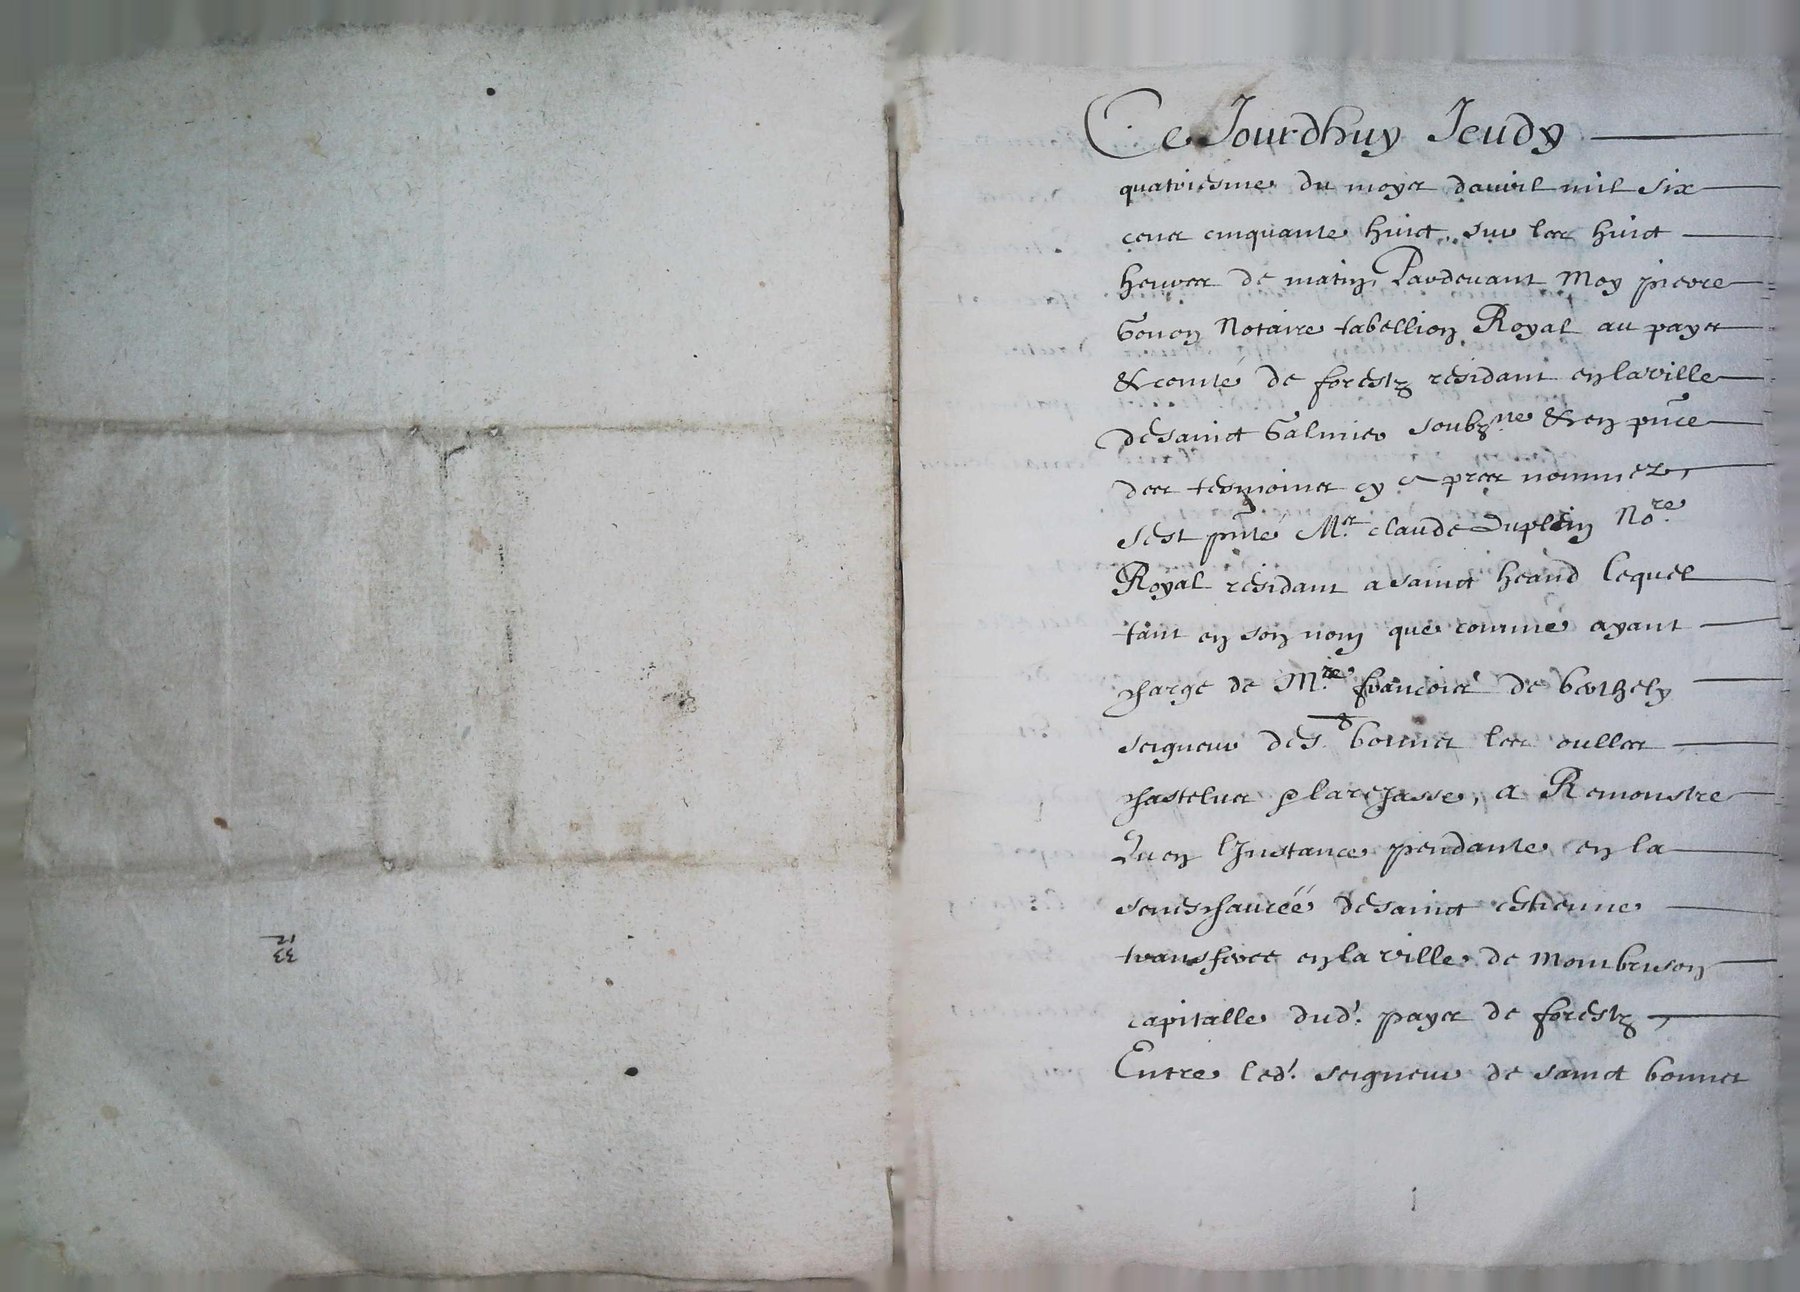 33
12
Ce Jourdhuy Jeudy
quatriesme du moys davril mil six
cens cinquante huict, sur les huict
heures de matin, Pardevant Moy pierre
Gonon Notaire tabellion Royal au pays
& comté de forestz residant en la ville
de sainct Galmier soubzne & en pnce
des tesmoins cy apres nommez,
sest pnté Mr claude Duplein Nore
Royal residant a sainct heand lequel
tant en son nom que comme ayant
charge de Mre francois de
seigneur de St bonnet les oulles
chastelus & larejasse, a Remonstre
Quen lInstance pendante en la
seneschaucéé de sainct estienne
transferee en la ville de Montbrison
capitalle dud. pays de forestz,
Entre led. seigneur de sainct bonnet